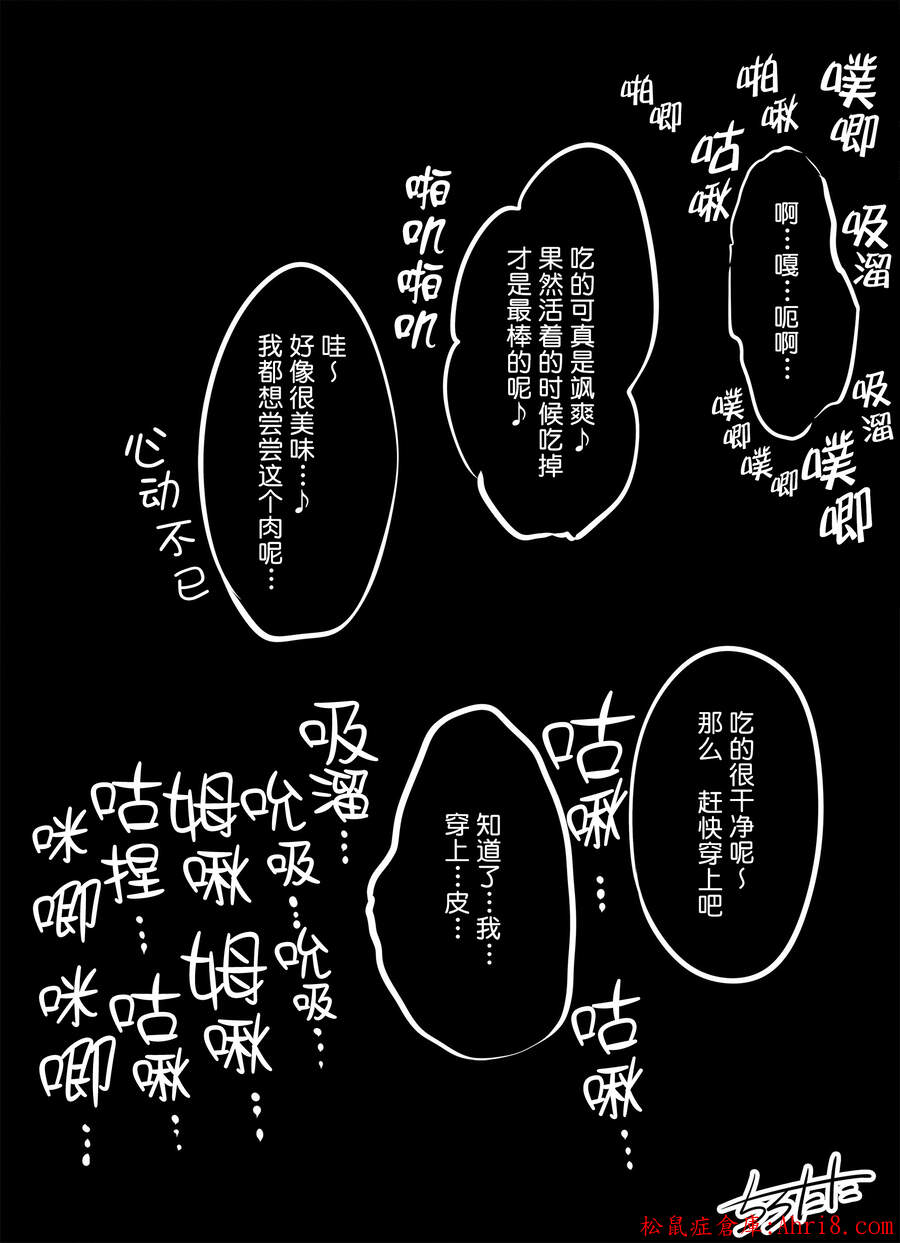 噗唧
啪啾
啪唧
咕啾
吸溜
啊…嘎…呃啊…
吸溜
噗唧
噗唧
噗唧
吃的可真是飒爽♪
果然活着的时候吃掉
才是最棒的呢♪
啪叽啪叽
哇~
好像很美味…♪
我都想尝尝这个肉呢…
心动不已
吃的很干净呢~
那么 赶快穿上吧
咕啾…
咕啾…
知道了…我…
穿上…皮…
吸溜…
吮吸…
姆啾
咕捏…
咪唧
吮吸…
姆啾…
咕啾…
咪唧…
松鼠症倉庫:Ahri8.com